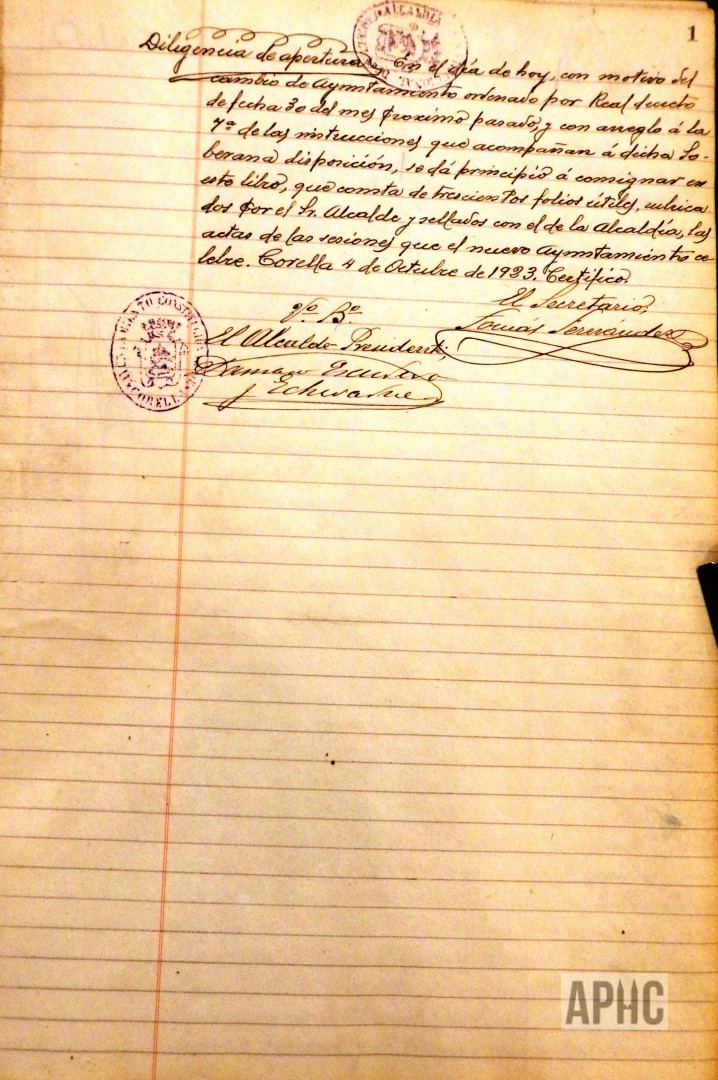 1
ALCALDIA
Diligencia de apertura. En el día de hoy, con motivo del
cambio de Ayuntamiento ordenado por Real decreto
de fecha 30 del mes proximo pasado, y con arreglo á la
7ª de las instrucciones que acompañan á dicha So-
berana disposición, se dá principio á consignar en
este libro, que consta de trescientos folios útiles, rubrica
dos por el Sr. Alcalde y sellados con el de la Alcaldía, las
actas de las sesiones que el nuevo Ayuntamiento ce-
lebre. Corella 4 de Octubre de 1923. Certifico.
El Secretario,
Vº. Bº
Tomás Fernandez
El Alcalde Presidente,
Damaso
y
AYUNTAMIENTO CONSTITUCIONAL
CORELLA
APHC